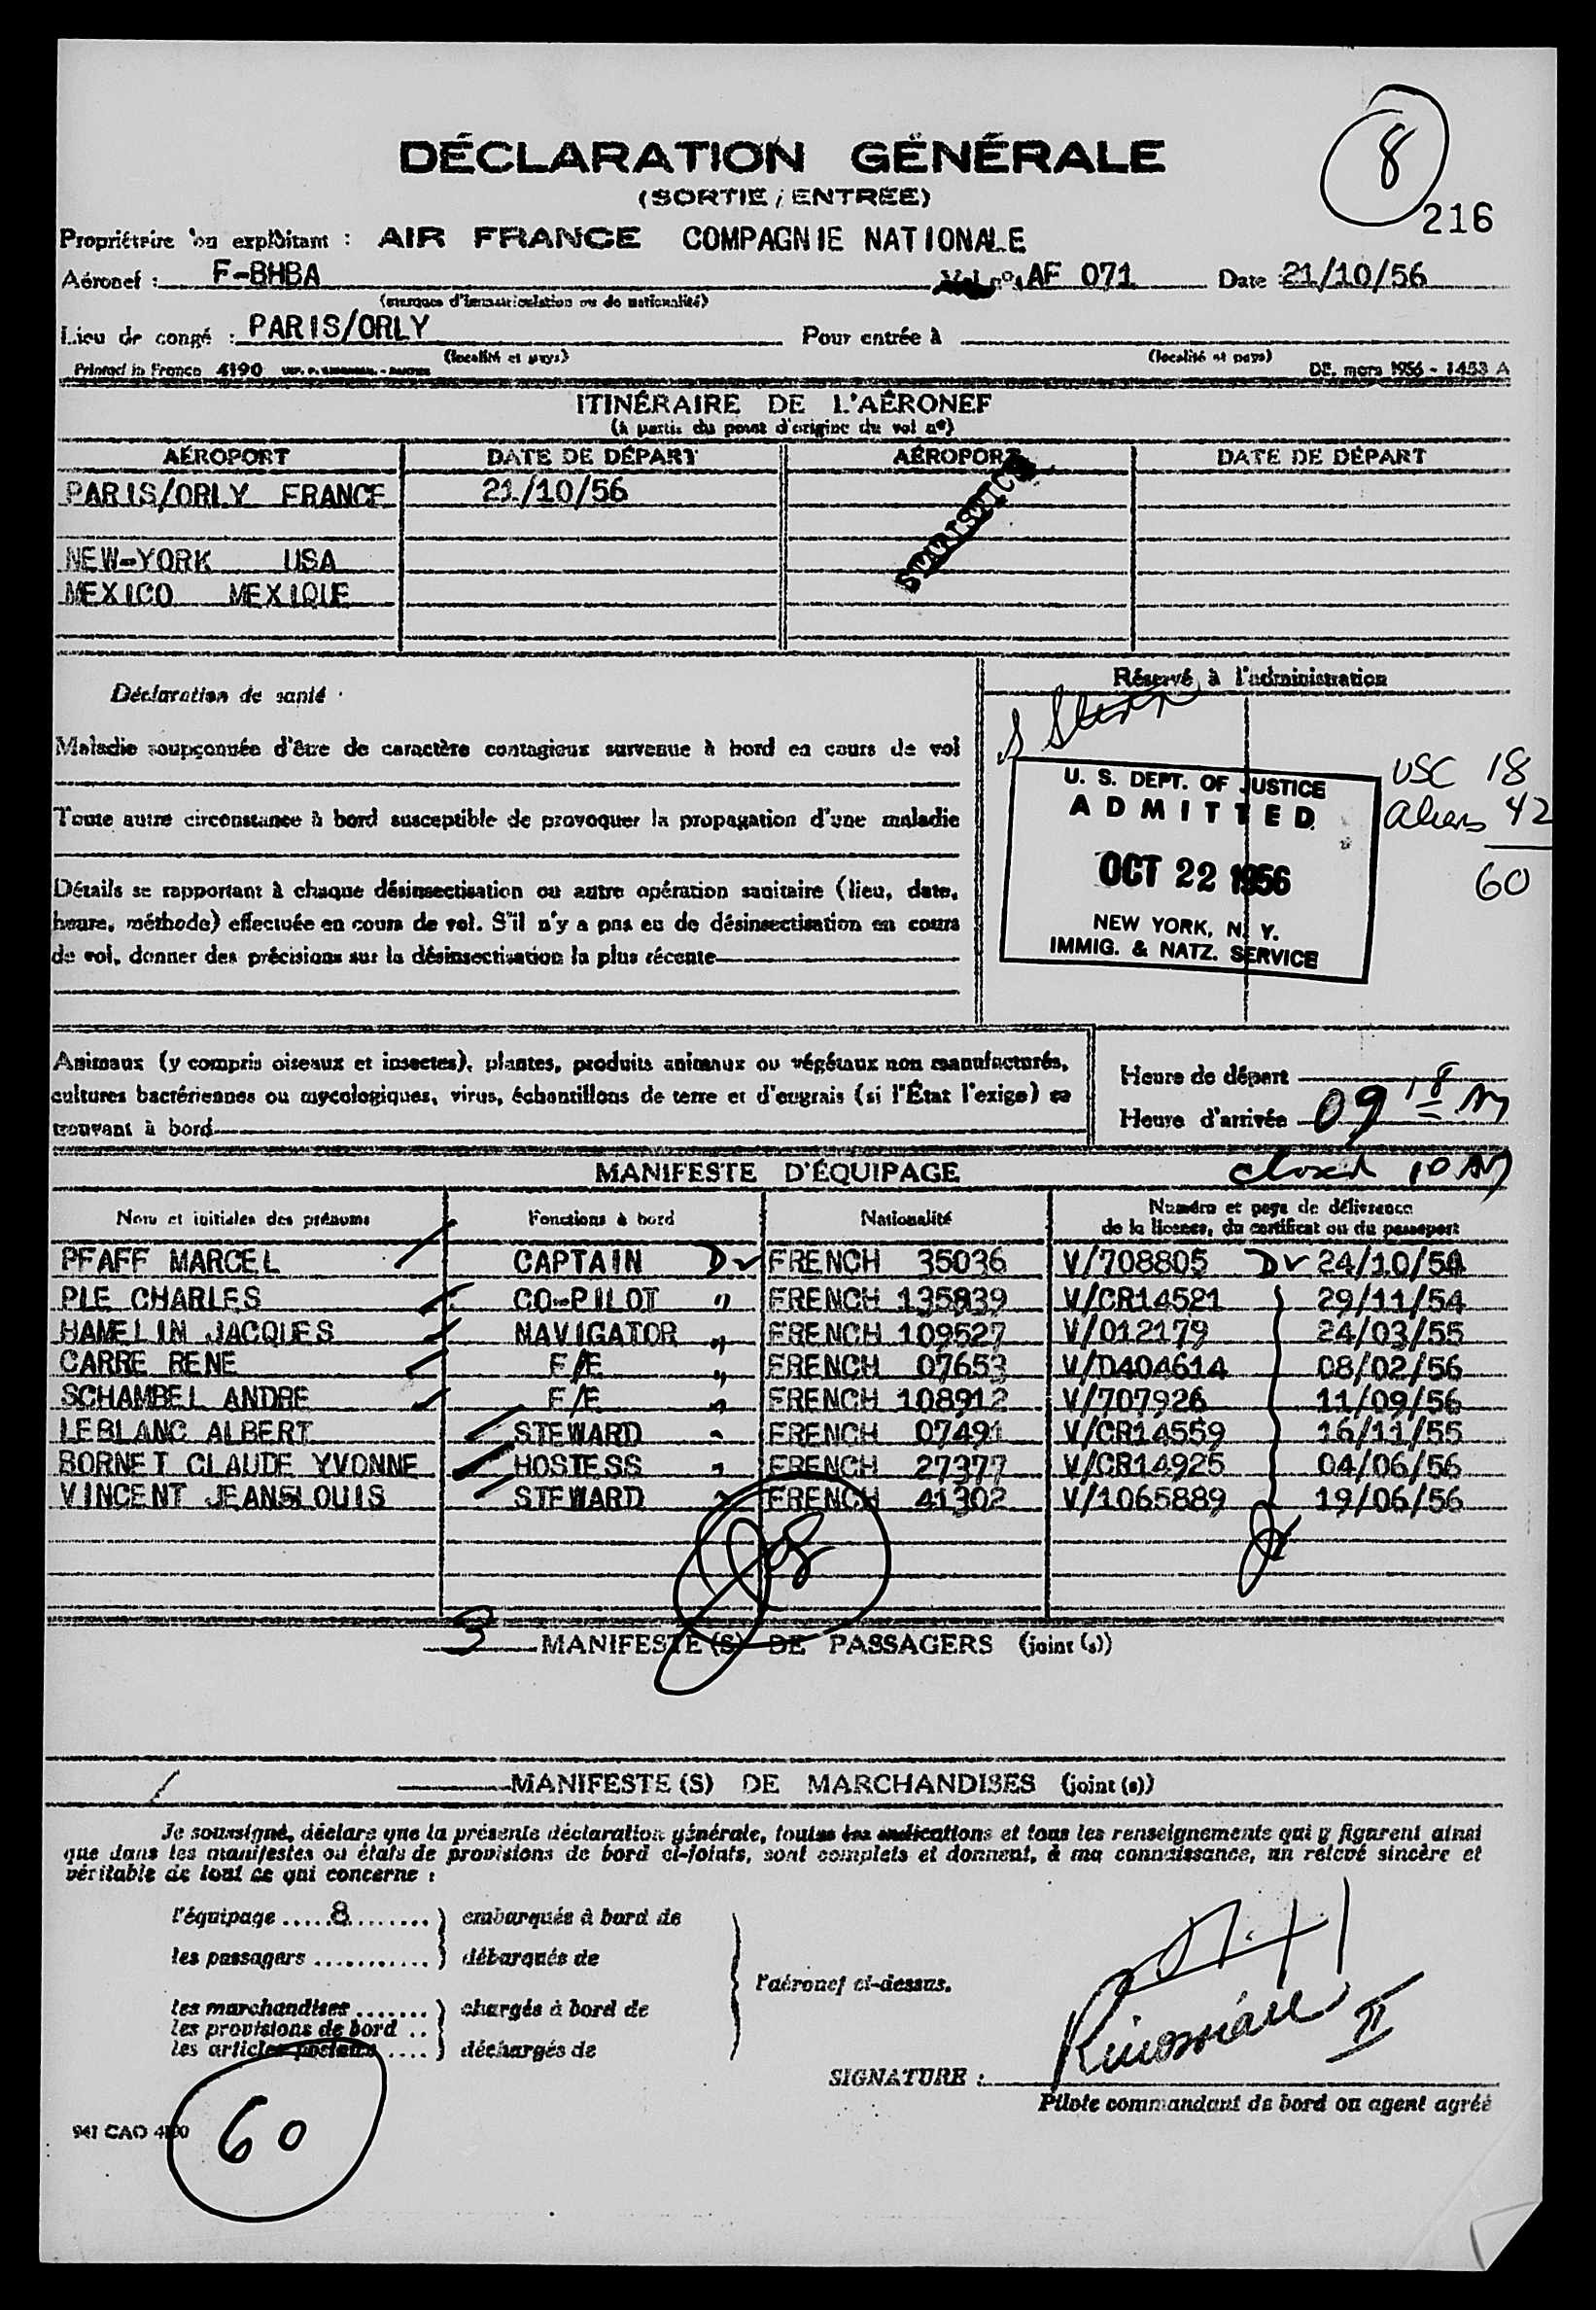 8
216
DÉCLARATION GÉNÉRALE
(SORTIE / ENTRÉE)
Propriétaire ou exploitant : AIR FRANCE COMPAGNIE NATIONALE
Aéronef : F-BHBA Vol nº AF 071 Date 21/10/56
(marques d'immatriculation ou de nationalité)
Lieu de congé : PARIS/ORLY Pour entrée à
(localité et pays) (localité et pays)
Printed in France 4190 DE. mars 1956 - 1453 A
ITINÉRAIRE DE L'AÉRONEF
(à partir du point d'origine du vol nº)
AÉROPORT DATE DE DÉPART AÉROPORT DATE DE DÉPART
PARIS/ORLY FRANCE 21/10/56
STATISTICS
NEW-YORK USA
MEXICO MEXIQUE
Déclaration de santé
Réservé à l'administration
Maladie soupçonnée d'être de caractère contagieux survenue à bord en cours de vol
Toute autre circonstance à bord susceptible de provoquer la propagation d'une maladie
Détails se rapportant à chaque désinsectisation ou autre opération sanitaire (lieu, date,
heure, méthode) effectuée en cours de vol. S'il n'y a pas eu de désinsectisation en cours
de vol, donner des précisions sur la désinsectisation la plus récente
U. S. DEPT. OF JUSTICE
ADMITTED
OCT 22 1956
NEW YORK, N. Y.
IMMIG. & NATZ. SERVICE
USC 18
aliens 42
60
Animaux (y compris oiseaux et insectes), plantes, produits animaux ou végétaux non manufacturés,
cultures bactériennes ou mycologiques, virus, échantillons de terre et d'engrais (si l'État l'exige) se
trouvant à bord
Heure de départ
Heure d'arrivée 09 18 AM
closed 10 AM
MANIFESTE D'ÉQUIPAGE
Nom et initiales des prénoms Fonctions à bord Nationalité Numéro et pays de délivrance
de la licence, du certificat ou du passeport
PFAFF MARCEL CAPTAIN FRENCH 35036 V/708805 24/10/50
PLE CHARLES CO-PILOT " FRENCH 135839 V/CR14521 29/11/54
HAMELIN JACQUES NAVIGATOR " FRENCH 109527 V/012179 24/03/55
CARRE RENE F/E " FRENCH 07653 V/D404614 08/02/56
SCHAMBEL ANDRE F/E " FRENCH 108912 V/707926 11/09/56
LEBLANC ALBERT STEWARD " FRENCH 07491 V/CR14559 16/11/55
BORNET CLAUDE YVONNE HOSTESS " FRENCH 27377 V/CR14925 04/06/56
VINCENT JEANSLOUIS STEWARD " FRENCH 41302 V/1065889 19/06/56
3 MANIFESTE (S) DE PASSAGERS (joint (s))
MANIFESTE (S) DE MARCHANDISES (joint (s))
Je soussigné, déclare que la présente déclaration générale, toutes les indications et tous les renseignements qui y figurent ainsi
que dans les manifestes ou états de provisions de bord ci-joints, sont complets et donnent, à ma connaissance, un relevé sincère et
véritable de tout ce qui concerne :
l'équipage .....8........ ) embarqués à bord de
les passagers ............ ) débarqués de
l'aéronef ci-dessus.
les marchandises ....... ) chargés à bord de
les provisions de bord ..
les articles postaux .... ) déchargés de
SIGNATURE :
Pilote commandant de bord ou agent agréé
60
941 CAO 4190